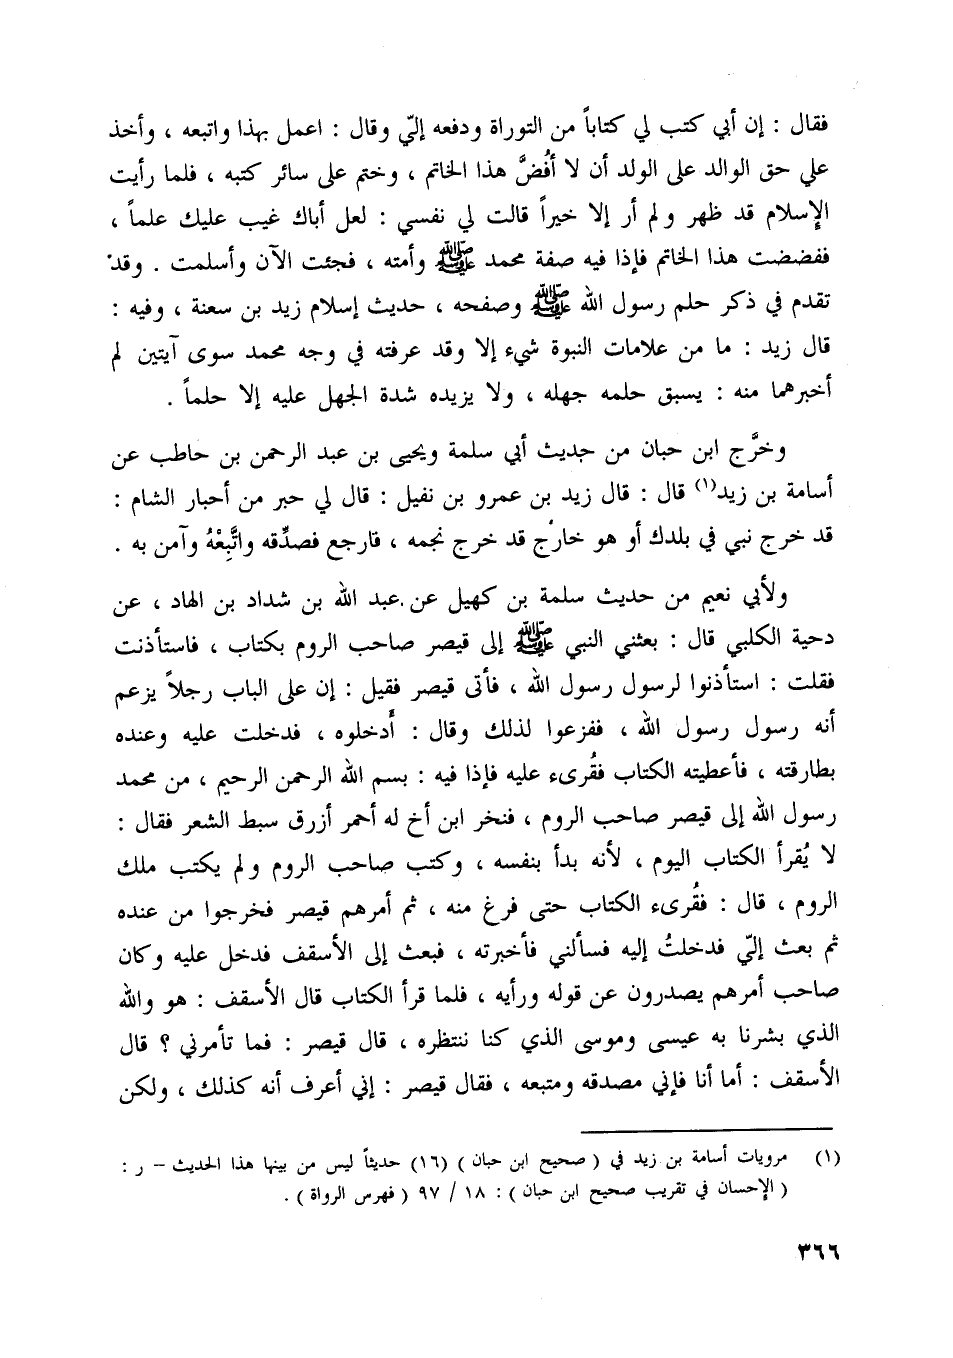 فقال : إن أبي كتب لي كتاباً من التوراة ودفعه إليّ وقال : اعمل بهذا واتبعه ، وأخذ
علي حق الوالد على الولد أن لا أفُضَّ هذا الخاتم ، وختم على سائر كتبه ، فلما رأيت
الإسلام قد ظهر ولم أر إلا خيراً قالت لي نفسي : لعل أباك غيب عليك علماً ،
ففضضت هذا الخاتم فإذا فيه صفة محمد ﷺ وأمته ، فجئت الآن وأسلمت . وقد
تقدم في ذكر حلم رسول الله ﷺ وصفحه ، حديث إسلام زيد بن سعنة ، وفيه :
قال زيد : ما من علامات النبوة شيء إلا وقد عرفته في وجه محمد سوى آيتين لم
أخبرهما منه : يسبق حلمه جهله ، ولا يزيده شدة الجهل عليه إلا حلماً .
وخرَّج ابن حبان من حديث أبي سلمة ويحيى بن عبد الرحمن بن حاطب عن
أسامة بن زيد(١) قال : قال زيد بن عمرو بن نفيل : قال لي حبر من أحبار الشام :
قد خرج نبي في بلدك أو هو خارج قد خرج نجمه ، فارجع فصدِّقه واتَّبِعْهُ وآمن به .
ولأبي نعيم من حديث سلمة بن كهيل عن عبد الله بن شداد بن الهاد ، عن
دحية الكلبي قال : بعثني النبي ﷺ إلى قيصر صاحب الروم بكتاب ، فاستأذنت
فقلت : استأذنوا لرسول رسول الله ، فأتى قيصر فقيل : إن على الباب رجلاً يزعم
أنه رسول رسول الله ، ففزعوا لذلك وقال : أدخلوه ، فدخلت عليه وعنده
بطارقته ، فأعطيته الكتاب فقُرىء عليه فإذا فيه : بسم الله الرحمن الرحيم ، من محمد
رسول الله إلى قيصر صاحب الروم ، فنخر ابن أخ له أحمر أزرق سبط الشعر فقال :
لا يُقرأ الكتاب اليوم ، لأنه بدأ بنفسه ، وكتب صاحب الروم ولم يكتب ملك
الروم ، قال : فقُرىء الكتاب حتى فرغ منه ، ثم أمرهم قيصر فخرجوا من عنده
ثم بعث إليّ فدخلتُ إليه فسألني فأخبرته ، فبعث إلى الأسقف فدخل عليه وكان
صاحب أمرهم يصدرون عن قوله ورأيه ، فلما قرأ الكتاب قال الأسقف : هو والله
الذي بشرنا به عيسى وموسى الذي كنا ننتظره ، قال قيصر : فما تأمرني ؟ قال
الأسقف : أما أنا فإني مصدقه ومتبعه ، فقال قيصر : إني أعرف أنه كذلك ، ولكن
(١) مرويات أسامة بن زيد في ( صحيح ابن حبان ) (١٦) حديثاً ليس من بينها هذا الحديث – ر :
( الإحسان في تقريب صحيح ابن حبان ) : ١٨ / ٩٧ ( فهرس الرواة ) .
٣٦٦